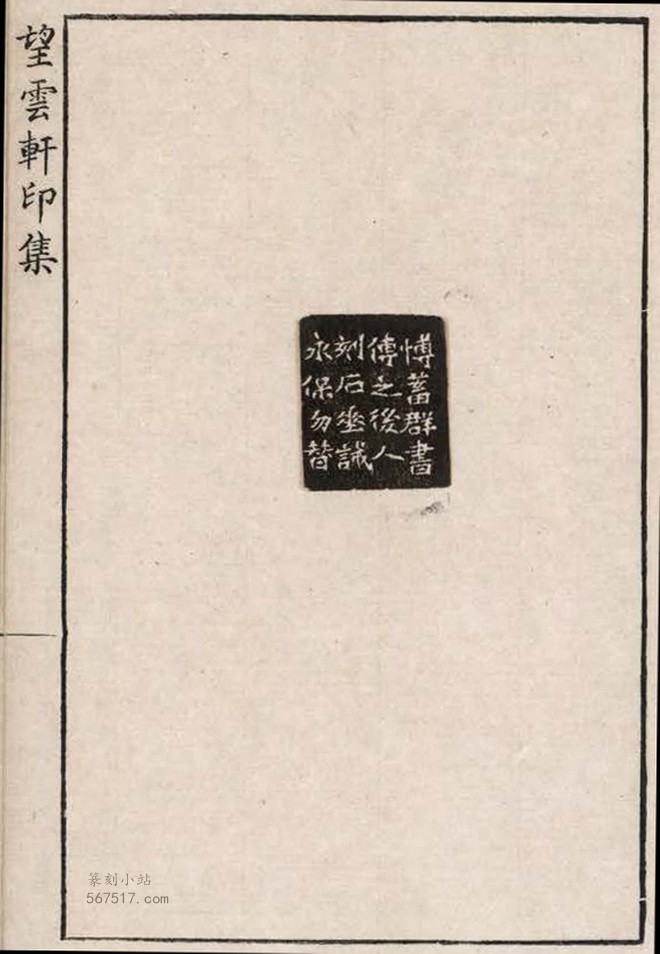 望雲軒印集
愽蓄群書
傳之後人
刻石垂誡
永保勿替
篆刻小站
567517.com